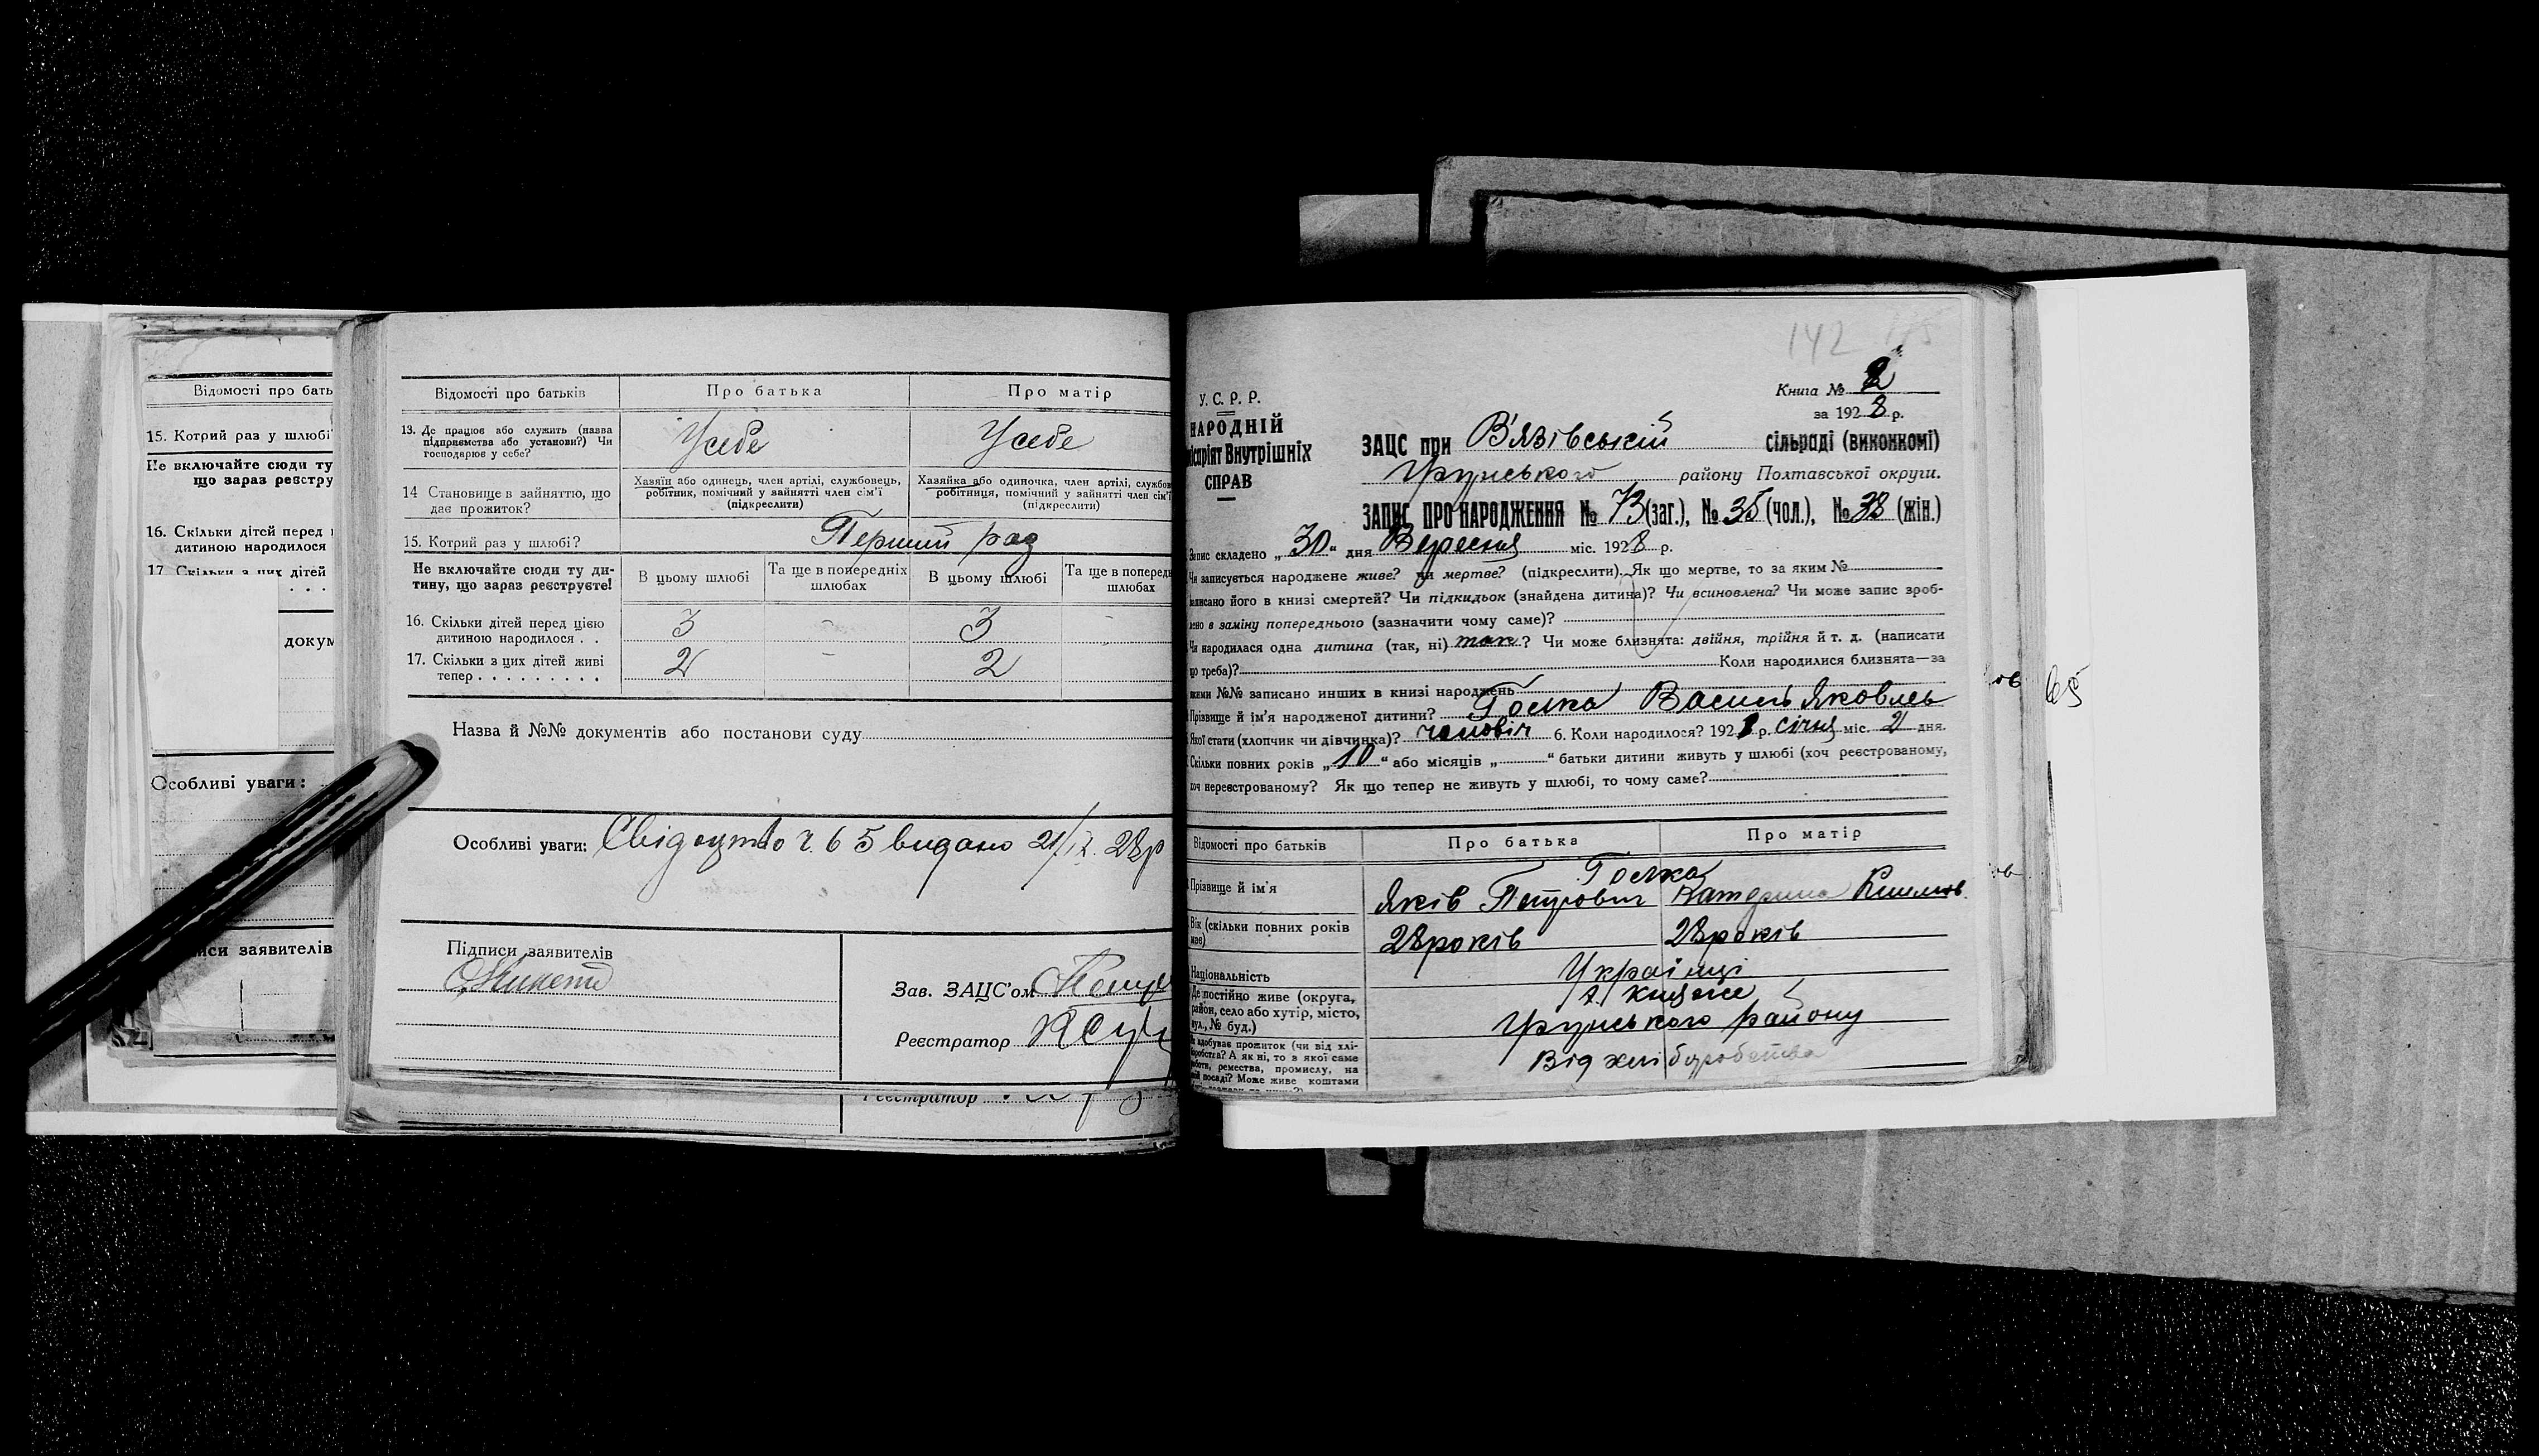 Відомості про бать
15. Котрий раз у шлюбі
Не включайте сюди ту
що зараз реєстру
16. Скільки дітей перед
дитиною народилося
17. Скільки з цих дітей
. . .
докум
Особливі уваги:
иси заявителів
Відомості про батьків
Про батька
Про матір
13. Де працює або служить (назва
підприємства або установи?) Чи
господарює у себе?
У себе
У себе
14 Становище в зайняттю, що
дає прожиток?
Хазяїн або одинець, член артілі, службовець,
робітник, помічний у зайнятті член сім'ї
(підкреслити)
Хазяйка або одиночка, член артілі, службов
робітниця, помічний у зайнятті член сім'ї
(підкреслити)
15. Котрий раз у шлюбі?
Перший раз
Не включайте сюди ту ди-
тину, що зараз реєструєте!
В цьому шлюбі
Та ще в попередніх
шлюбах
В цьому шлюбі
Та ще в попередн
шлюбах
16. Скільки дітей перед цією
дитиною народилося . .
3 - 3 -
17. Скільки з цих дітей живі
тепер . . . . . . . . .
2 - 2
Назва й №№ документів або постанови суду
Особливі уваги: Свідоцтво ч. 65 видано 21/IX. 28р
Підписи заявителів
Зав. ЗАЦС'ом
Реєстратор
Реєстратор
142
Книга № 2
за 1928 р.
У. С. Р. Р.
НАРОДНІЙ
ісаріят Внутрішніх
СПРАВ
ЗАЦС при В'язівській сільраді (виконкомі)
Грунського району Полтавської округи.
ЗАПИС ПРО НАРОДЖЕННЯ № 73 (заг.), № 35 (чол.), № 38 (жін.)
Запис складено „30" дня Вересня міс. 1928 р.
Чи записується народжене живе? чи мертве? (підкреслити). Як що мертве, то за яким №
записано його в книзі смертей? Чи підкидьок (знайдена дитина)? Чи всиновлена? Чи може запис зроб-
лено в заміну попереднього (зазначити чому саме)?
Чи народилася одна дитина (так, ні) так? Чи може близнята: двійня, трійня й т. д. (написати
що треба)? Коли народилися близнята—за
якими №№ записано инших в книзі народжень
Прізвище й ім'я народженої дитини? Голка Василь Яковлев
Якої стати (хлопчик чи дівчинка)? чоловіч 6. Коли народилося? 1928 р. січня міс. 2 дня.
Скільки повних років „10" або місяців „ " батьки дитини живуть у шлюбі (хоч реєстрованому,
хоч нереєстрованому? Як що тепер не живуть у шлюбі, то чому саме?
Відомості про батьків
Про батька
Про матір
Прізвище й ім'я
Голка
Яків Петрович
Катерина Климов.
Вік (скільки повних років
має)
28 років
28 років
Національність
Українці
Де постійно живе (округа,
район, село або хутір, місто,
вул., № буд.)
Грунського району
Як здобуває прожиток (чи від хлі-
боробства? А як ні, то з якої саме
роботи, ремества, промислу, на
якій посаді? Може живе коштами
Від хліборобства
65